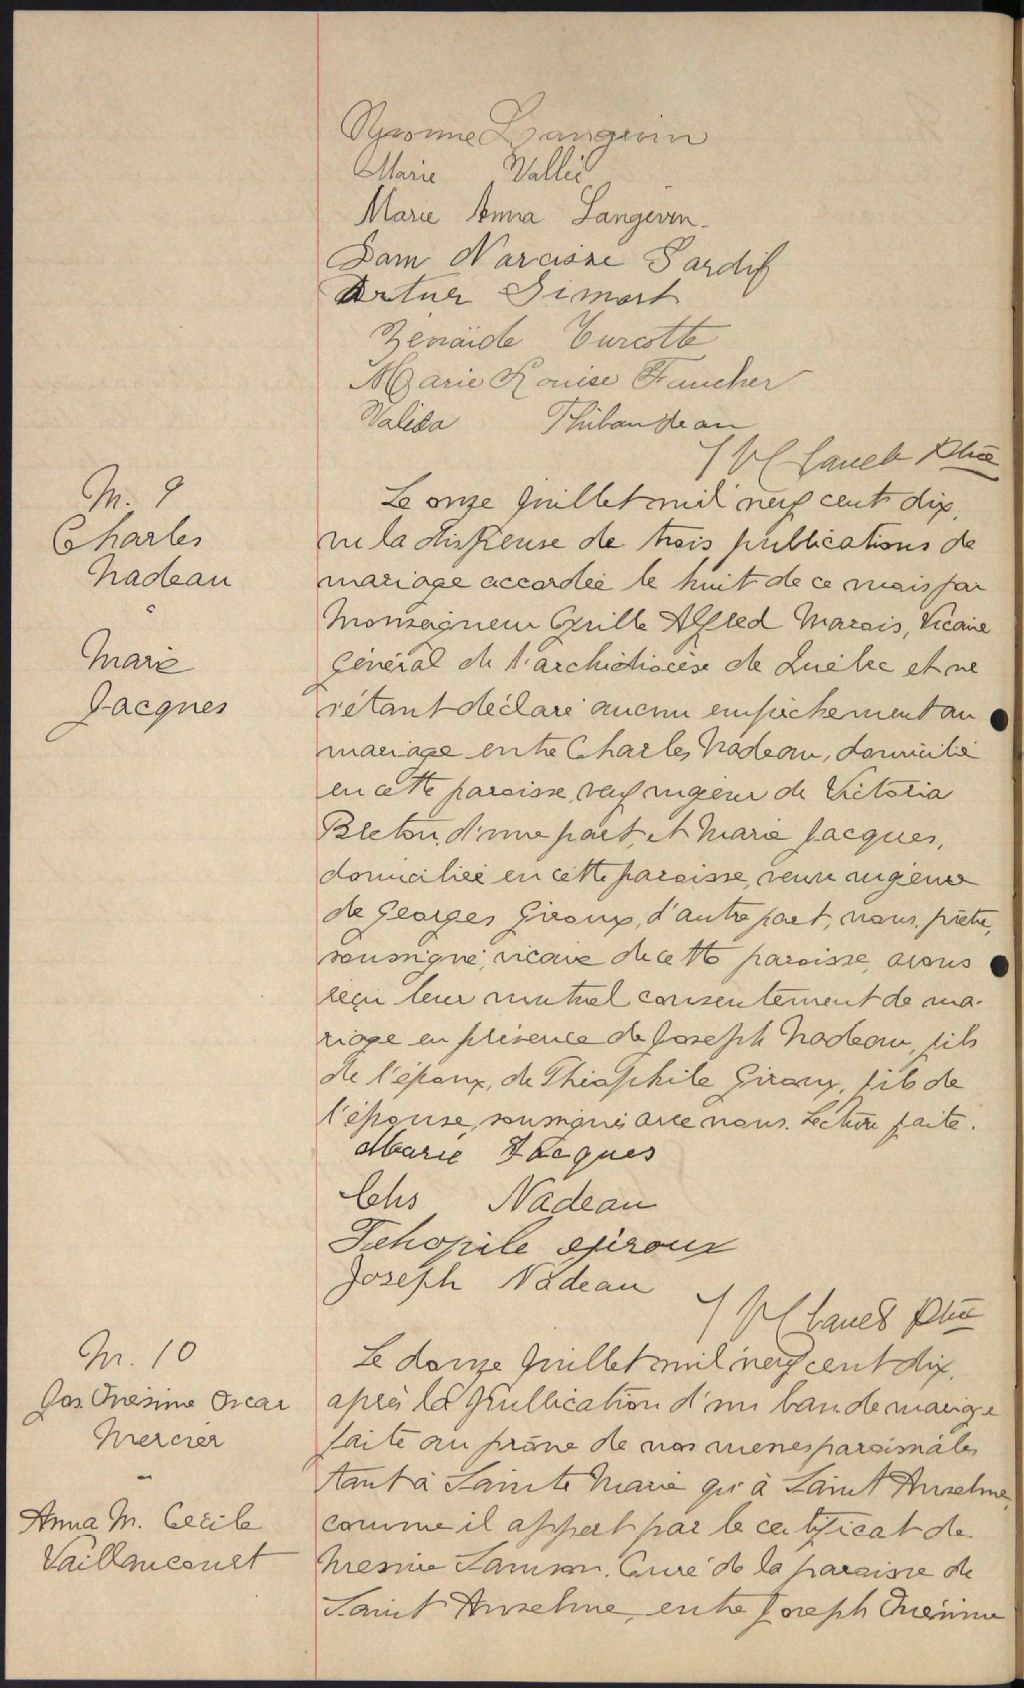 Yvonne Langevin
Marie Vallée
Marie Anna Langevin.
Sam Narcisse Tardif
Artur Simart
Zénaïde Turcotte
Marie Louise Faucher
Valida Thibaudeau
Ptre
M. 9
Charles
Nadeau
"
Marie
Jacques
Le onze juillet mil neuf cent dix,
vu la dispense de trois publications de
mariage accordée le huit de ce mois par
Monseigneur Cyrille Alfred Marois, Vicaire
Général de l'archidiocèse de Québec et ne
s'étant déclaré aucun empêchement au
mariage entre Charles Nadeau, domicilié
en cette paroisse, veuf majeur de Victoria
Breton, d'une part, et Marie Jacques,
domiciliée en cette paroisse, veuve majeure
de Georges Giroux, d'autre part, nous, prêtre,
soussigné, vicaire de cette paroisse, avons
reçu leur mutuel consentement de ma-
riage en présence de Joseph Nadeau, fils
de l'époux, de Théophile Giroux, fils de
l'épouse, soussignés avec nous. Lecture faite.
Marie Jacques
Chs Nadeau
Tehopile Giroux
Joseph Nadeau
Ptre
M. 10
Jos. Onésime Oscar
Mercier
"
Anna M. Cécile
Vaillancourt
Le douze juillet mil neuf cent dix,
après la publication d'un ban de mariage
faite au prône de nos messes paroissiales
tant à Sainte Marie qu'à Saint Anselme,
comme il appert par le certificat de
Messire Samson, Curé de la paroisse de
Saint Anselme, entre Joseph Onésime